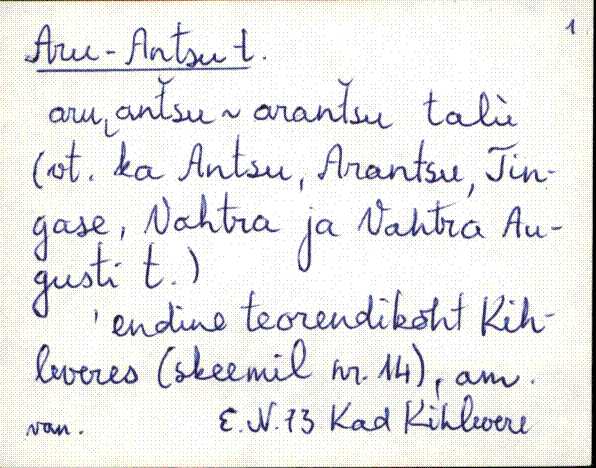 1
Aru-Antsu t.
aru͔antšu ~ arantšu talù
(vt. ka Antsu, Arantsu, Tin-
gase, Vahtra ja Vahtra Au-
gusti t.)
' endine teorendikoht Kih-
leveres (skeemil nr. 14), am.
van. E.N.73 Kad Kihlevere